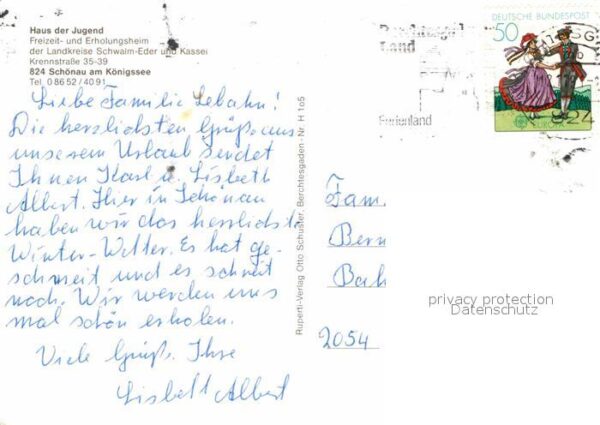 Haus der Jugend
Freizeit- und Erholungsheim
der Landkreise Schwalm-Eder und Kassel
Krennstraße 35-39
824 Schönau am Königssee
Tel. 0 86 52 / 40 91
Liebe Familie Lebahn!
Die herzlichsten Grüße aus
unserem Urlaub sendet
Ihnen Karl u. Lisbeth
Albert. Hier in Schönau
haben wir das herrlichste
Winter-Wetter. Es hat ge-
schneit und es schneit
noch. Wir werden uns
mal schön erholen.
Viele Grüße Ihre
Lisbeth Albert
Ruperti-Verlag Otto Schuster, Berchtesgaden · Nr. H 1o5
DEUTSCHE BUNDESPOST
50
EUROPA
Land
Ferienland
Fam.
Bern
Bah
2054
privacy protection
Datenschutz